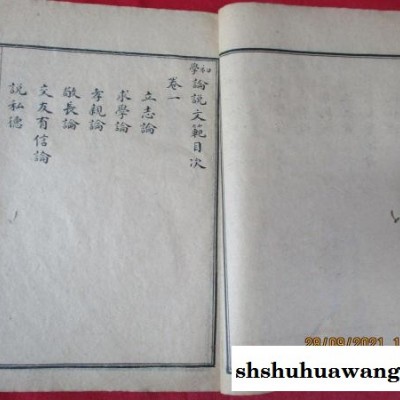 初學論說文範目次
卷一
立志論
求學論
孝親論
敬長論
交友有信論
說私德
29/09/2021 1
shshuhuawang